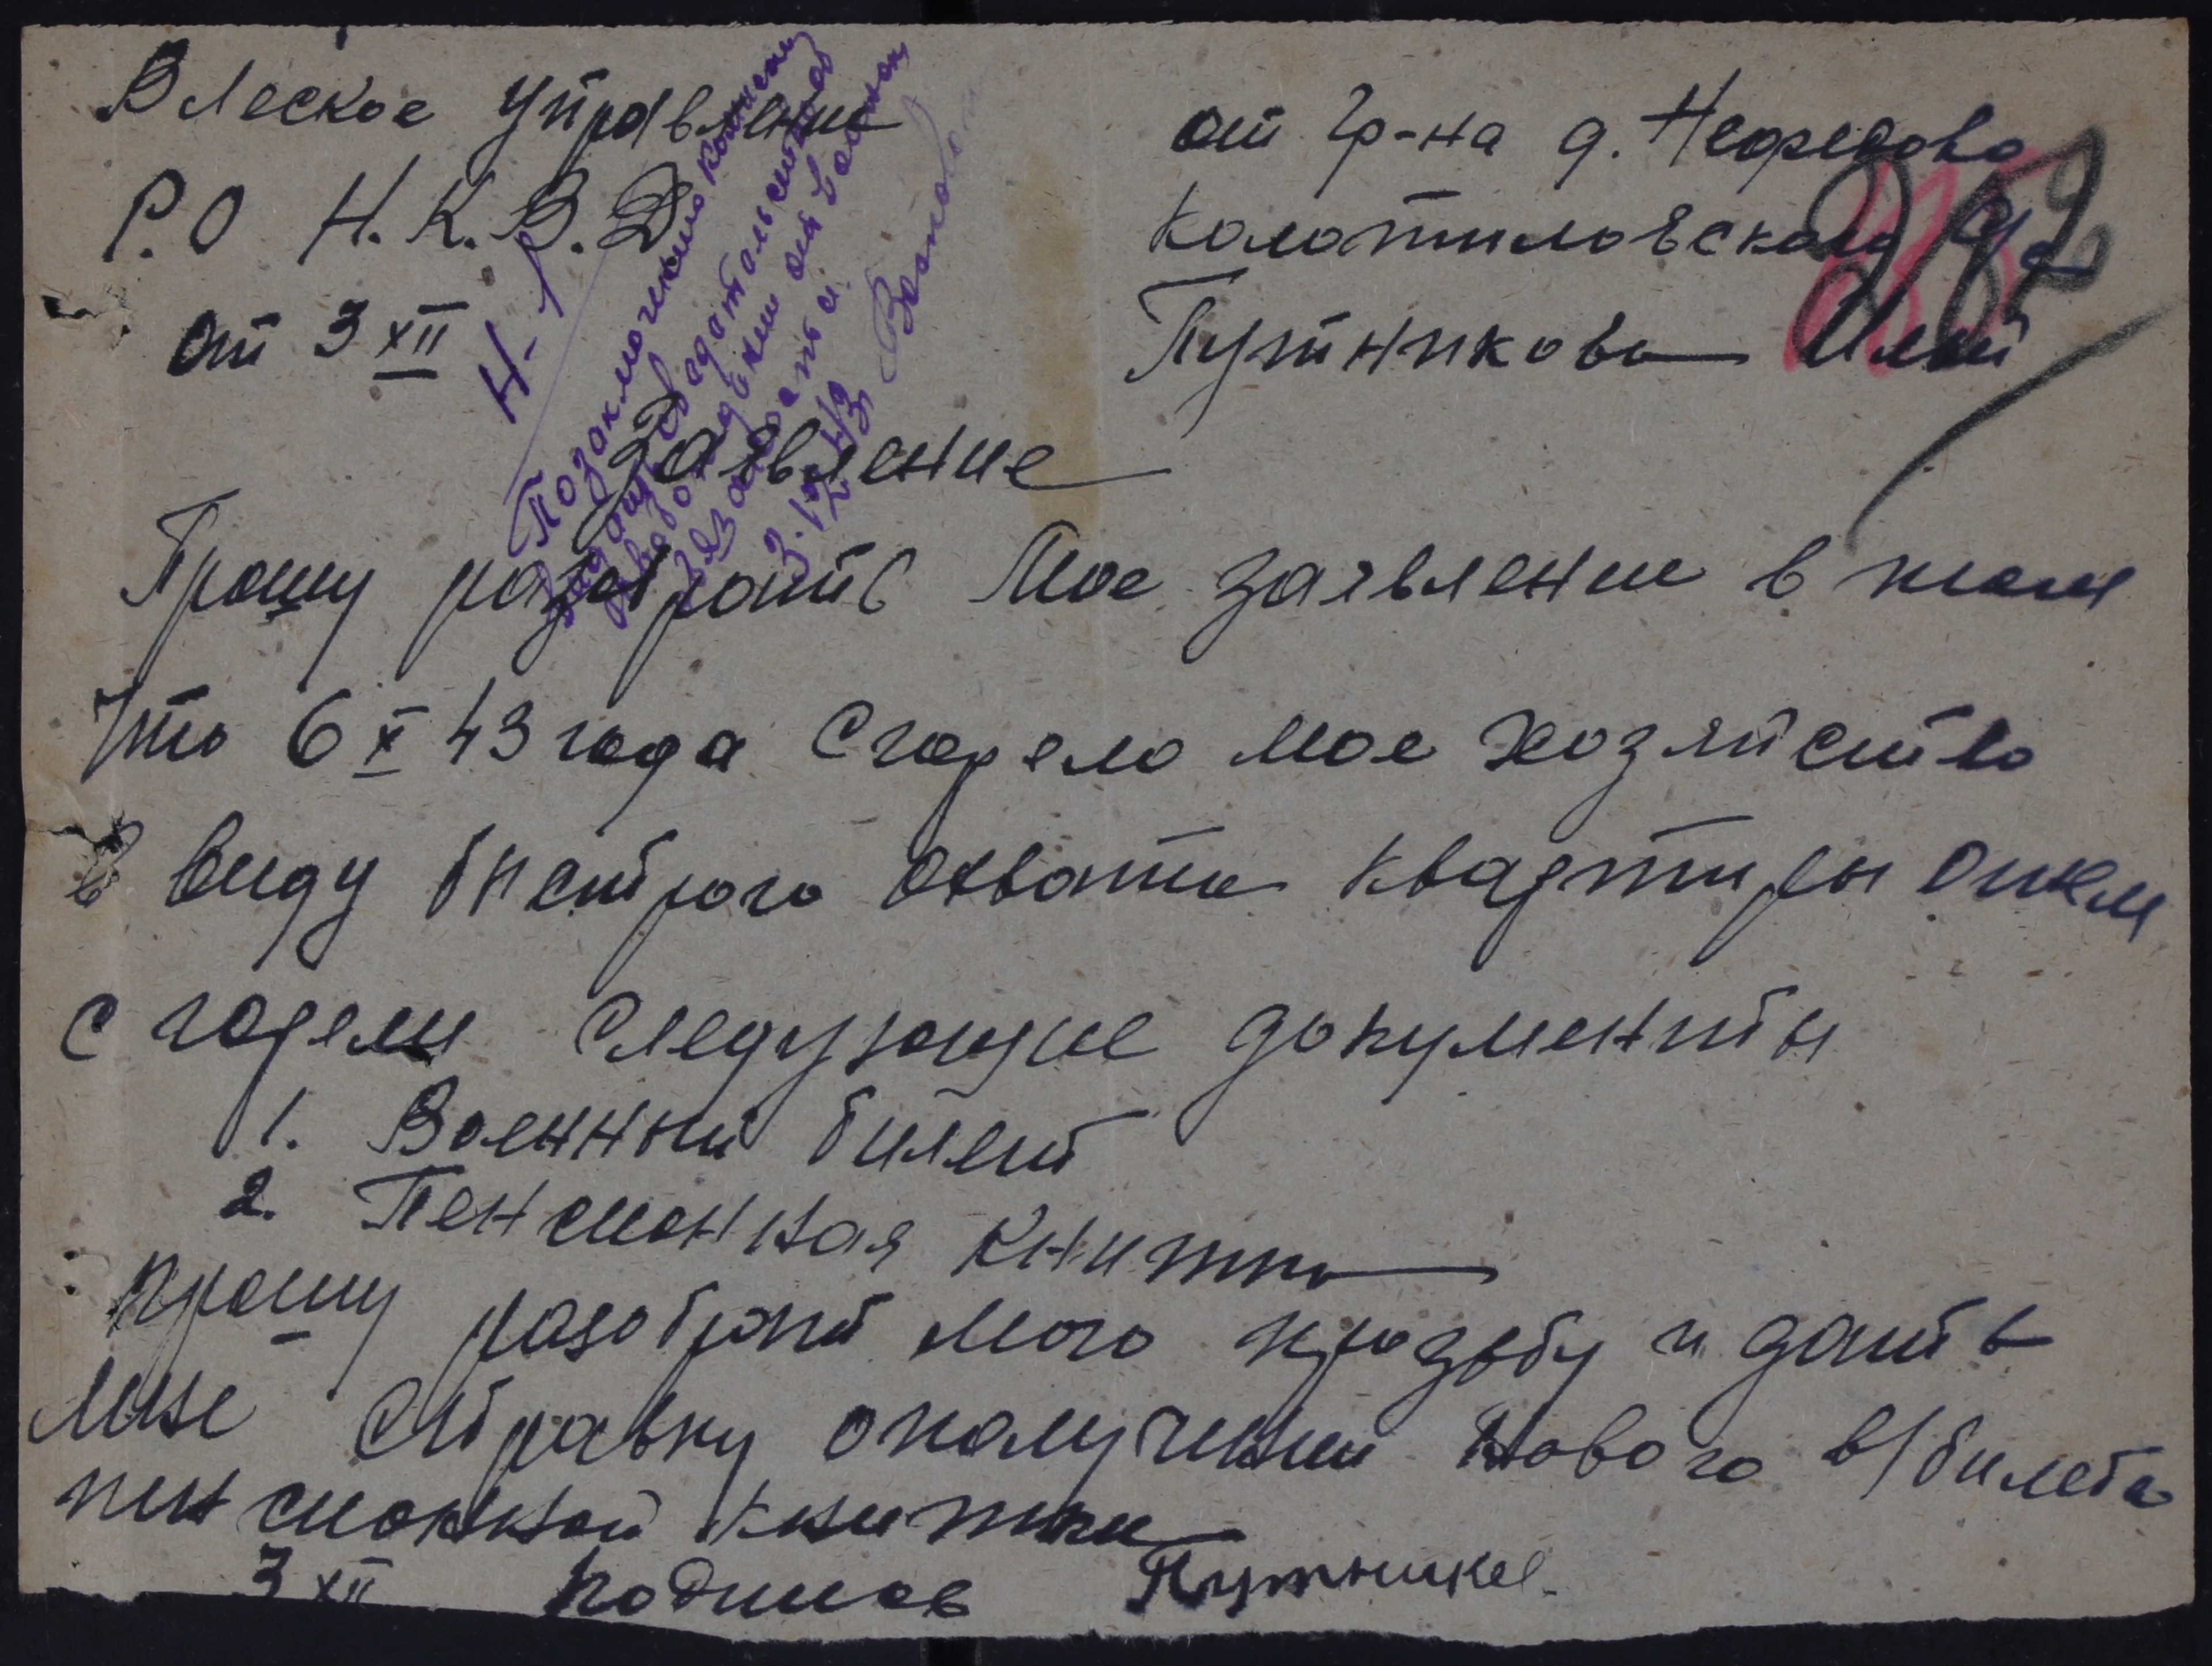 В Леское управление
Р.О Н.К.В.Д
от 3 XII
от гр-на д. Нефедово
Колотиловского
Путникова Ильи
Н-1
По заключению комиссии
3.12.43
Заявление
Прошу разобрать мое заявление в том
что 6 X 43 года сгорело мое хозяйство
в виду быстрого охвата квартиры огнем
сгорели следующие документы
1. Военный билет
2. Пенсионная книжка
прошу разобрать мою прозьбу и дать
мне справку о получении нового в/билета
пенсионной книжки
3 XII подпись Путников